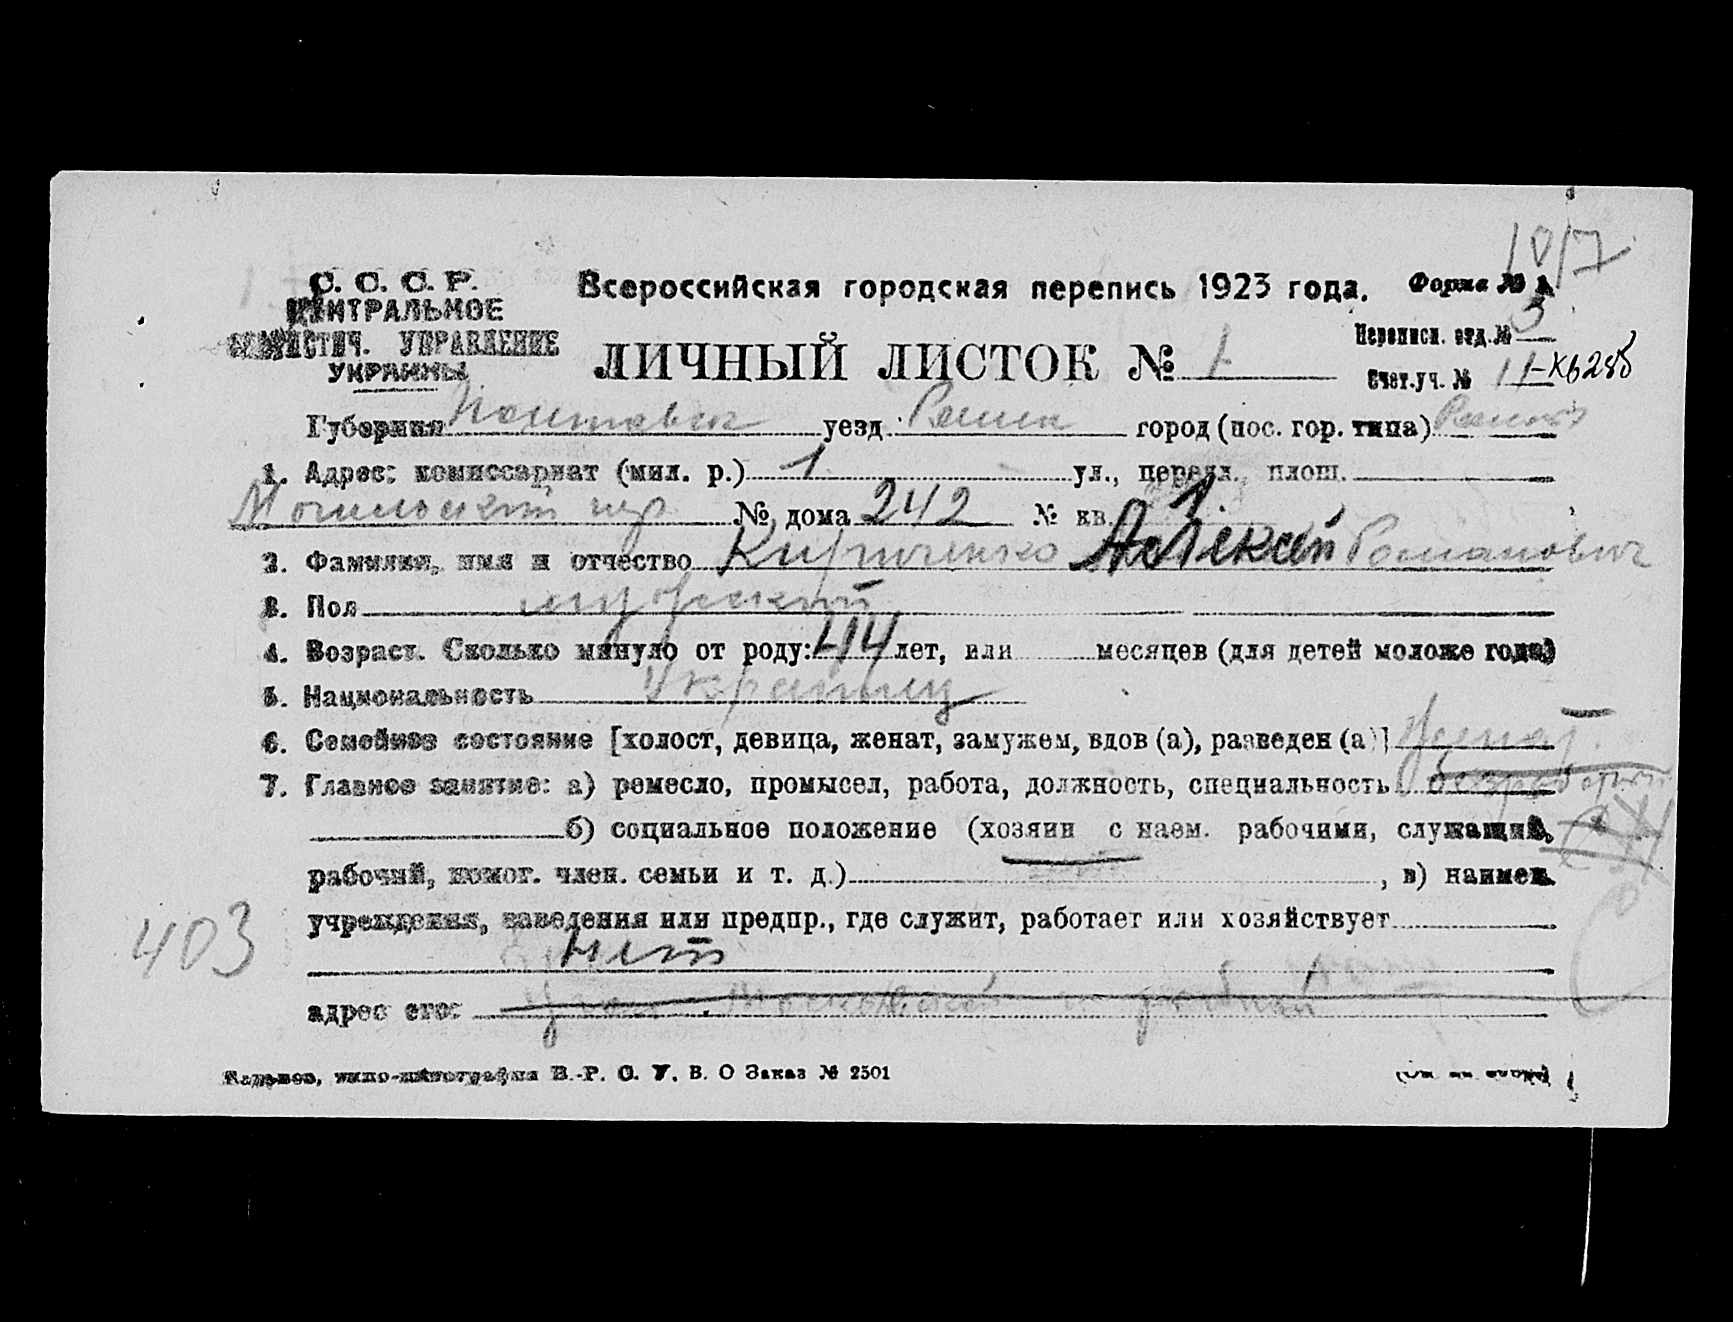 1917
С. С. С. Р. Всероссийская городская перепись 1923 года. Форма № 1.
ЦЕНТРАЛЬНОЕ
СТАТИСТИЧ. УПРАВЛЕНИЕ
УКРАИНЫ
Переписн. отд. № 3
ЛИЧНЫЙ ЛИСТОК № 1
Счет. уч. № 11-
Губерния Полтавск уезд Ромен город (пос. гор. типа) Ромны
1. Адрес: комиссариат (мил. р.) 1 ул., переул., площ.
№ дома 242 № кв. 1.
2. Фамилия, имя и отчество Кириченко Алексей Романович
3. Пол мужской
4. Возраст. Сколько минуло от роду: 44 лет, или месяцев (для детей моложе года)
5. Национальность Украинец
6. Семейное состояние [холост, девица, женат, замужем, вдов (а), разведен (а)] женат.
7. Главное занятие: а) ремесло, промысел, работа, должность, специальность безработный
б) социальное положение (хозяин с наем. рабочими, служащий,
рабочий, помог. член. семьи и т. д.) , в) наимен.
учреждения, заведения или предпр., где служит, работает или хозяйствует
403
нет
адрес его:
В.-Р. О. У. В. О Заказ № 2501